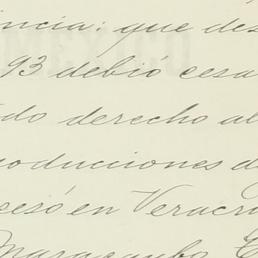 incia; que des
93 debió cesa
do derecho al
oducciones d
esó en Veracr
Maracaybo. C